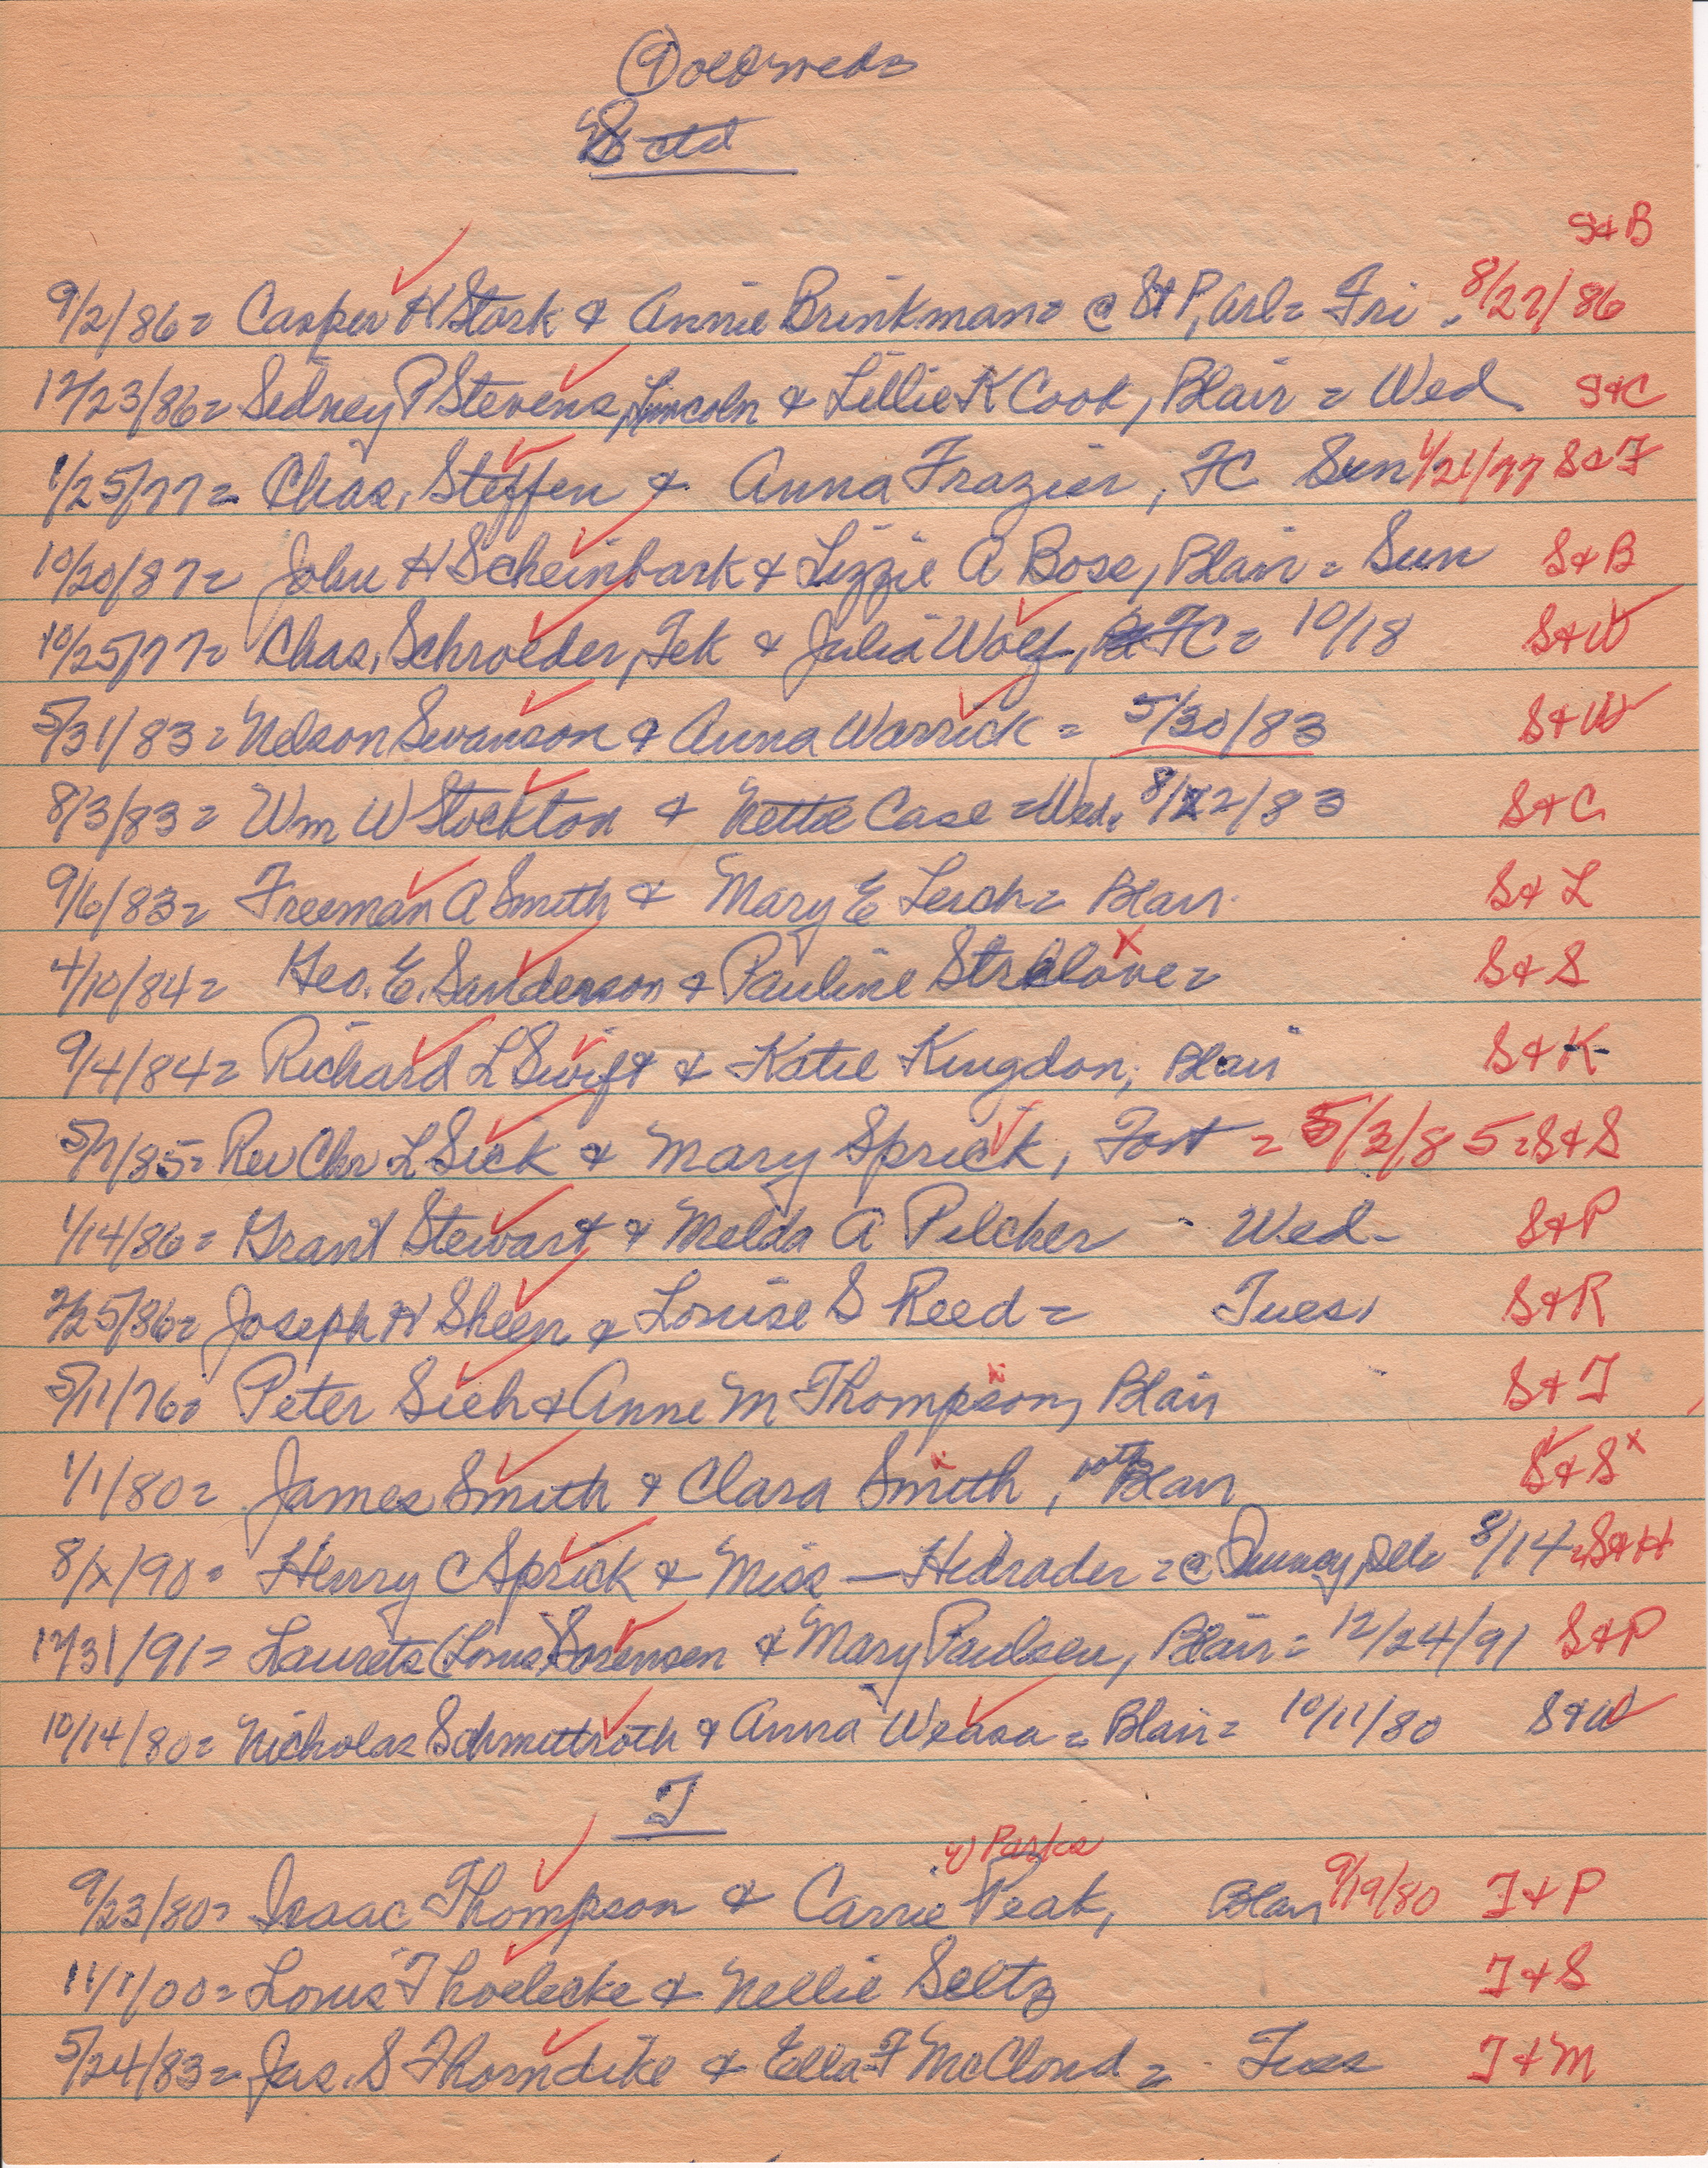 ⑨ old weds
S ctd
S+B
9/2/86= Casper H Stork & Annie Brinkman= @ St P, Arl= Fri. 8/27/86
12/23/86= Sidney P Stevens, Lincoln & Lillie K Cook, Blair = Wed S+C
1/25/77= Chas. Steffen & Anna Frazier, FC Sun 1/21/77 S+F
10/20/87= John H Scheinbark & Lizzie A Bose, Blair = Sun S+B
10/25/77= Chas. Schroeder, Tek & Julia Wolf, FC= 10/18 S+W
5/31/83= Nelson Swanson & Anna Warrick = 5/30/83 S+W
8/3/83= Wm W Stockton & Nettie Case =Wed. 8/22/83 S+C
9/6/83= Freeman A Smith & Mary E Lerch= Blair S+L
4/10/84= Geo. E. Sanderson & Pauline = S+S
9/4/84= Richard L Swift & Katie Kingdon, Blair S+K
5/7/85= Rev Chr L Sick & Mary Sprick, Font = 5/3/85=S+S
1/14/86= Grant Stewart & Melda A Pilcher - Wed- S+P
2/25/86= Joseph H Sheen & Louise S Reed= Tues, S+R
5/11/76= Peter Sieh & Anne M Thompson, Blair S+T
1/1/80= James Smith & Clara Smith, both Blair S+S x
8/x/90= Henry C Sprick & Miss — Hidrader =@ Quincy, Ills 8/14 =S+H
12/31/91= Laurets (Louis) Sorensen & Mary Paulsen, Blair= 12/24/91 S+P
10/14/80= Nicholas Schmittroth & Anna Weasa = Blair= 10/11/80 S+W
T
w Parks
9/23/80= Isaac Thompson & Carrie Peak, Blair 9/19/80 T+P
11/1/00= Louis Thoelecke & Nellie Seltz T+S
5/24/83= Jas. S Thorndike & Ella F McCloud = Tues T+M